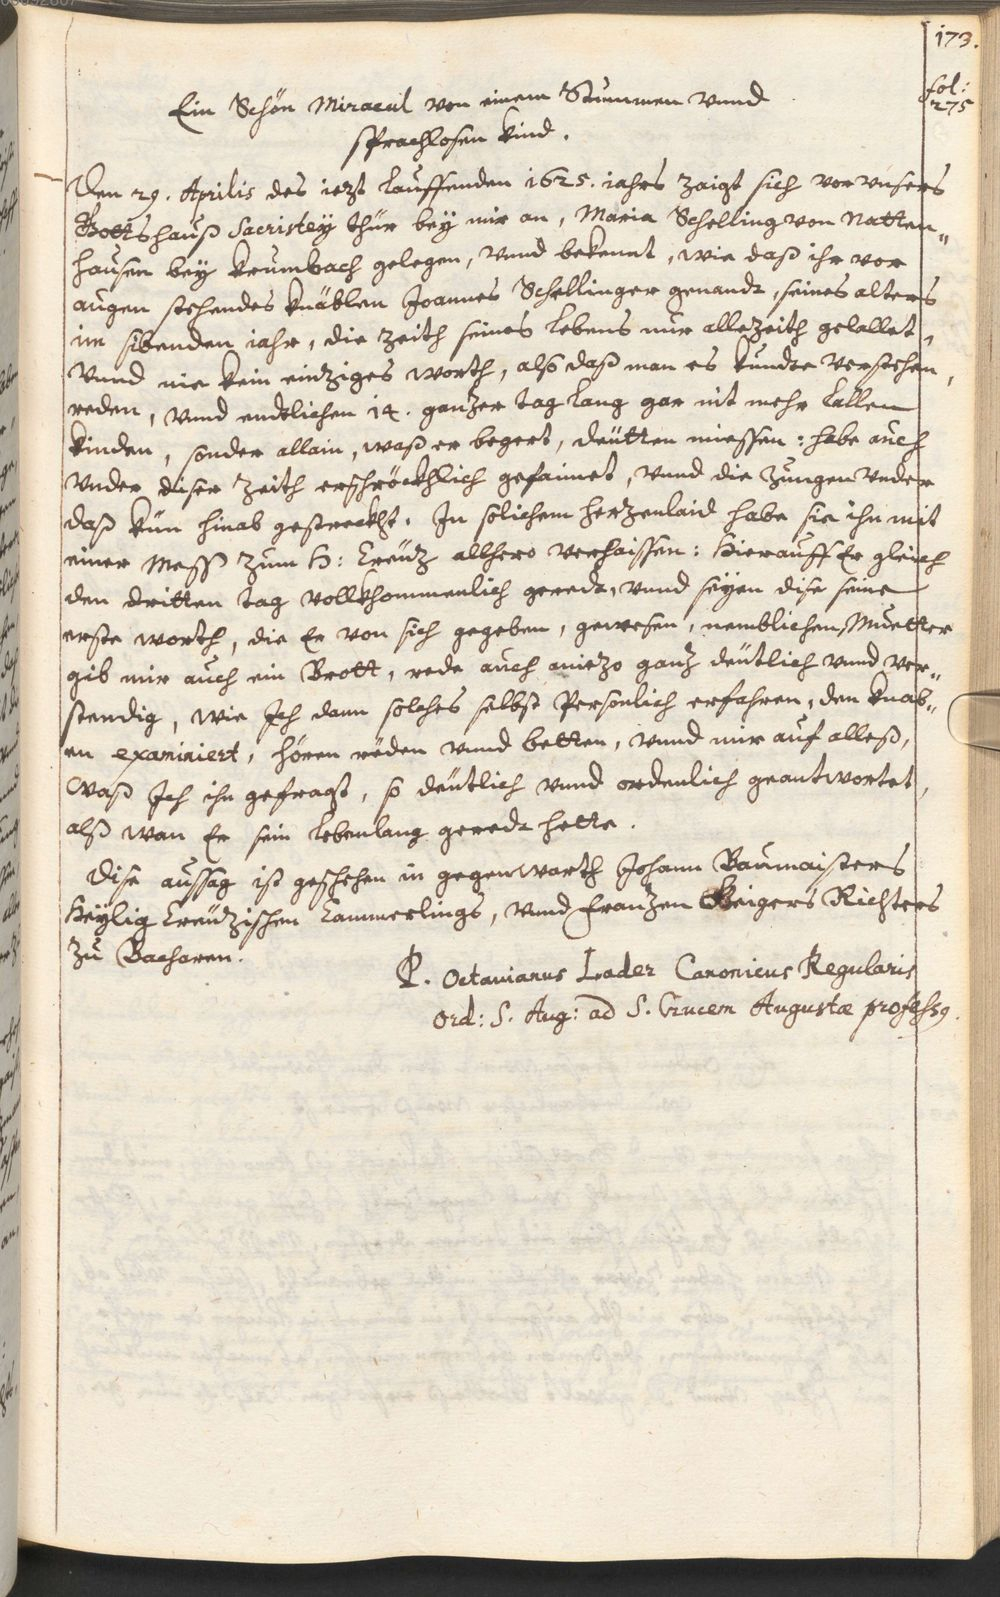 173.
fol:
275
Ein Schön Miracul von einem Stummen vnnd
sprachlosen kind.
Den 29. Aprilis des iezt lauffenden 1625. iahrs zaigt sich vor vnsers
Gottshauß Sacristeÿ thür beÿ mir an, Maria Schelling von Natten„
hausen beÿ Krumbach gelegen, vnnd bekennt, wie daß ihr vor
augen stehendes knäblen Joannes Schellinger genandt, seines alters
im sibenden iahr, die zeith seines lebens nur allezeith gelallet,
vnnd nie kein eindziges worth, also daß man es kundte verstehen,
reden, vnnd endtlichen 14. ganzer tag lang gar nit mehr lallen
kinden, sonder allain, waß er begert, deütten miessen: habe auch
vnder diser zeith erschröckhlich gefaimet, vnnd die zungen vnder
daß kün hinab gestreckht. In solichem herzenlaid habe sie ihn mit
einer Mess zum H: Creütz allhero verhaissen: Hierauff Er gleich
den dritten tag vollkhommenlich geredt, vnnd seÿen dise seine
erste worth, die Er von sich gegeben, gewesen, nemblichen, Muetter
gib mir auch ein Brott, rede auch aniezo ganz deütlich vnnd ver„
stendig, wie Ich dann solches selbst Persönlich erfahren, den knab„
en examiniert, hören reden vnnd betten, vnnd mir auf alleß,
waß Ich ihn gefragt, so deütlich vnnd ordenlich geantwortet,
alß wan Er sein lebenlang geredt hette.
Dise aussag ist geschehen in gegenwarth Johann Baumaisters
Heÿlig Creützischen Cammerlings, vnnd Franzen Geigers Richters
zu Bacharen.
P. Octauianus Lader Canonicus Regularis
Ord: S. Aug: ad S. Crucem Augustæ professꝰ.